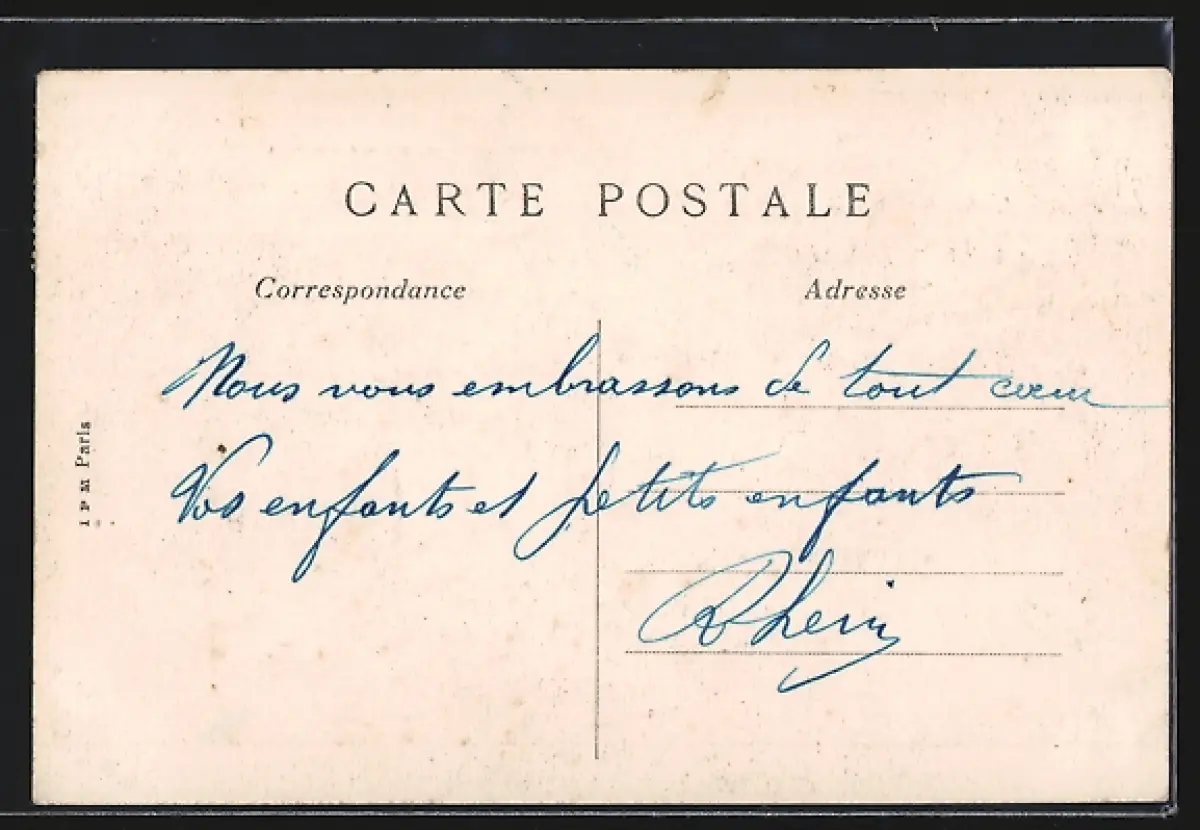 CARTE POSTALE
Correspondance
Adresse
Nous vous embrassons de tout cœur
Vos enfants et petits enfants
I P M Paris